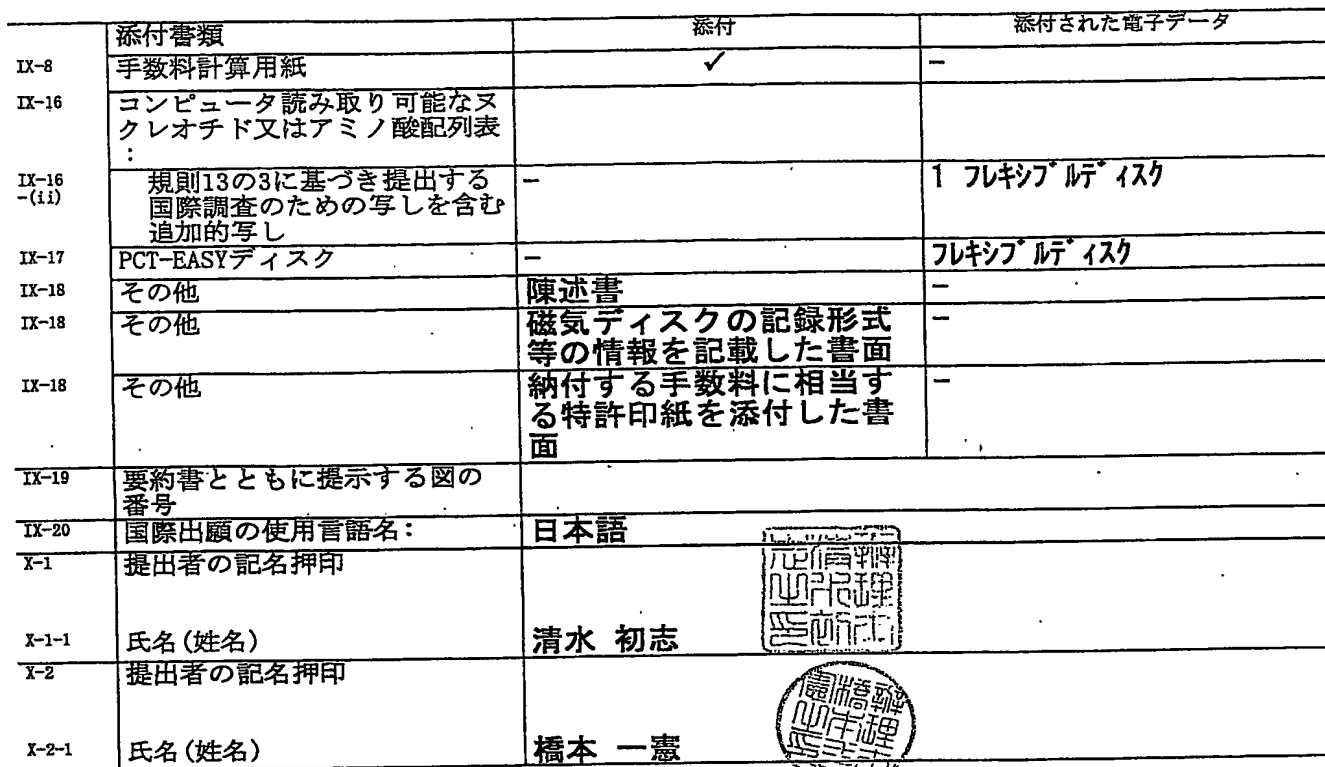 添付書類 添付 添付された電子データ
IX-8 手数料計算用紙 ✓ -
IX-16 コンピュータ読み取り可能なヌ
クレオチド又はアミノ酸配列表
:
IX-16 規則13の3に基づき提出する - 1 フレキシブルディスク
-(ii) 国際調査のための写しを含む
追加的写し
IX-17 PCT-EASYディスク - フレキシブルディスク
IX-18 その他 陳述書 -
IX-18 その他 磁気ディスクの記録形式 -
等の情報を記載した書面
IX-18 その他 納付する手数料に相当す -
る特許印紙を添付した書
面
IX-19 要約書とともに提示する図の
番号
IX-20 国際出願の使用言語名: 日本語
X-1 提出者の記名押印
X-1-1 氏名(姓名) 清水 初志
X-2 提出者の記名押印
X-2-1 氏名(姓名) 橋本 一憲